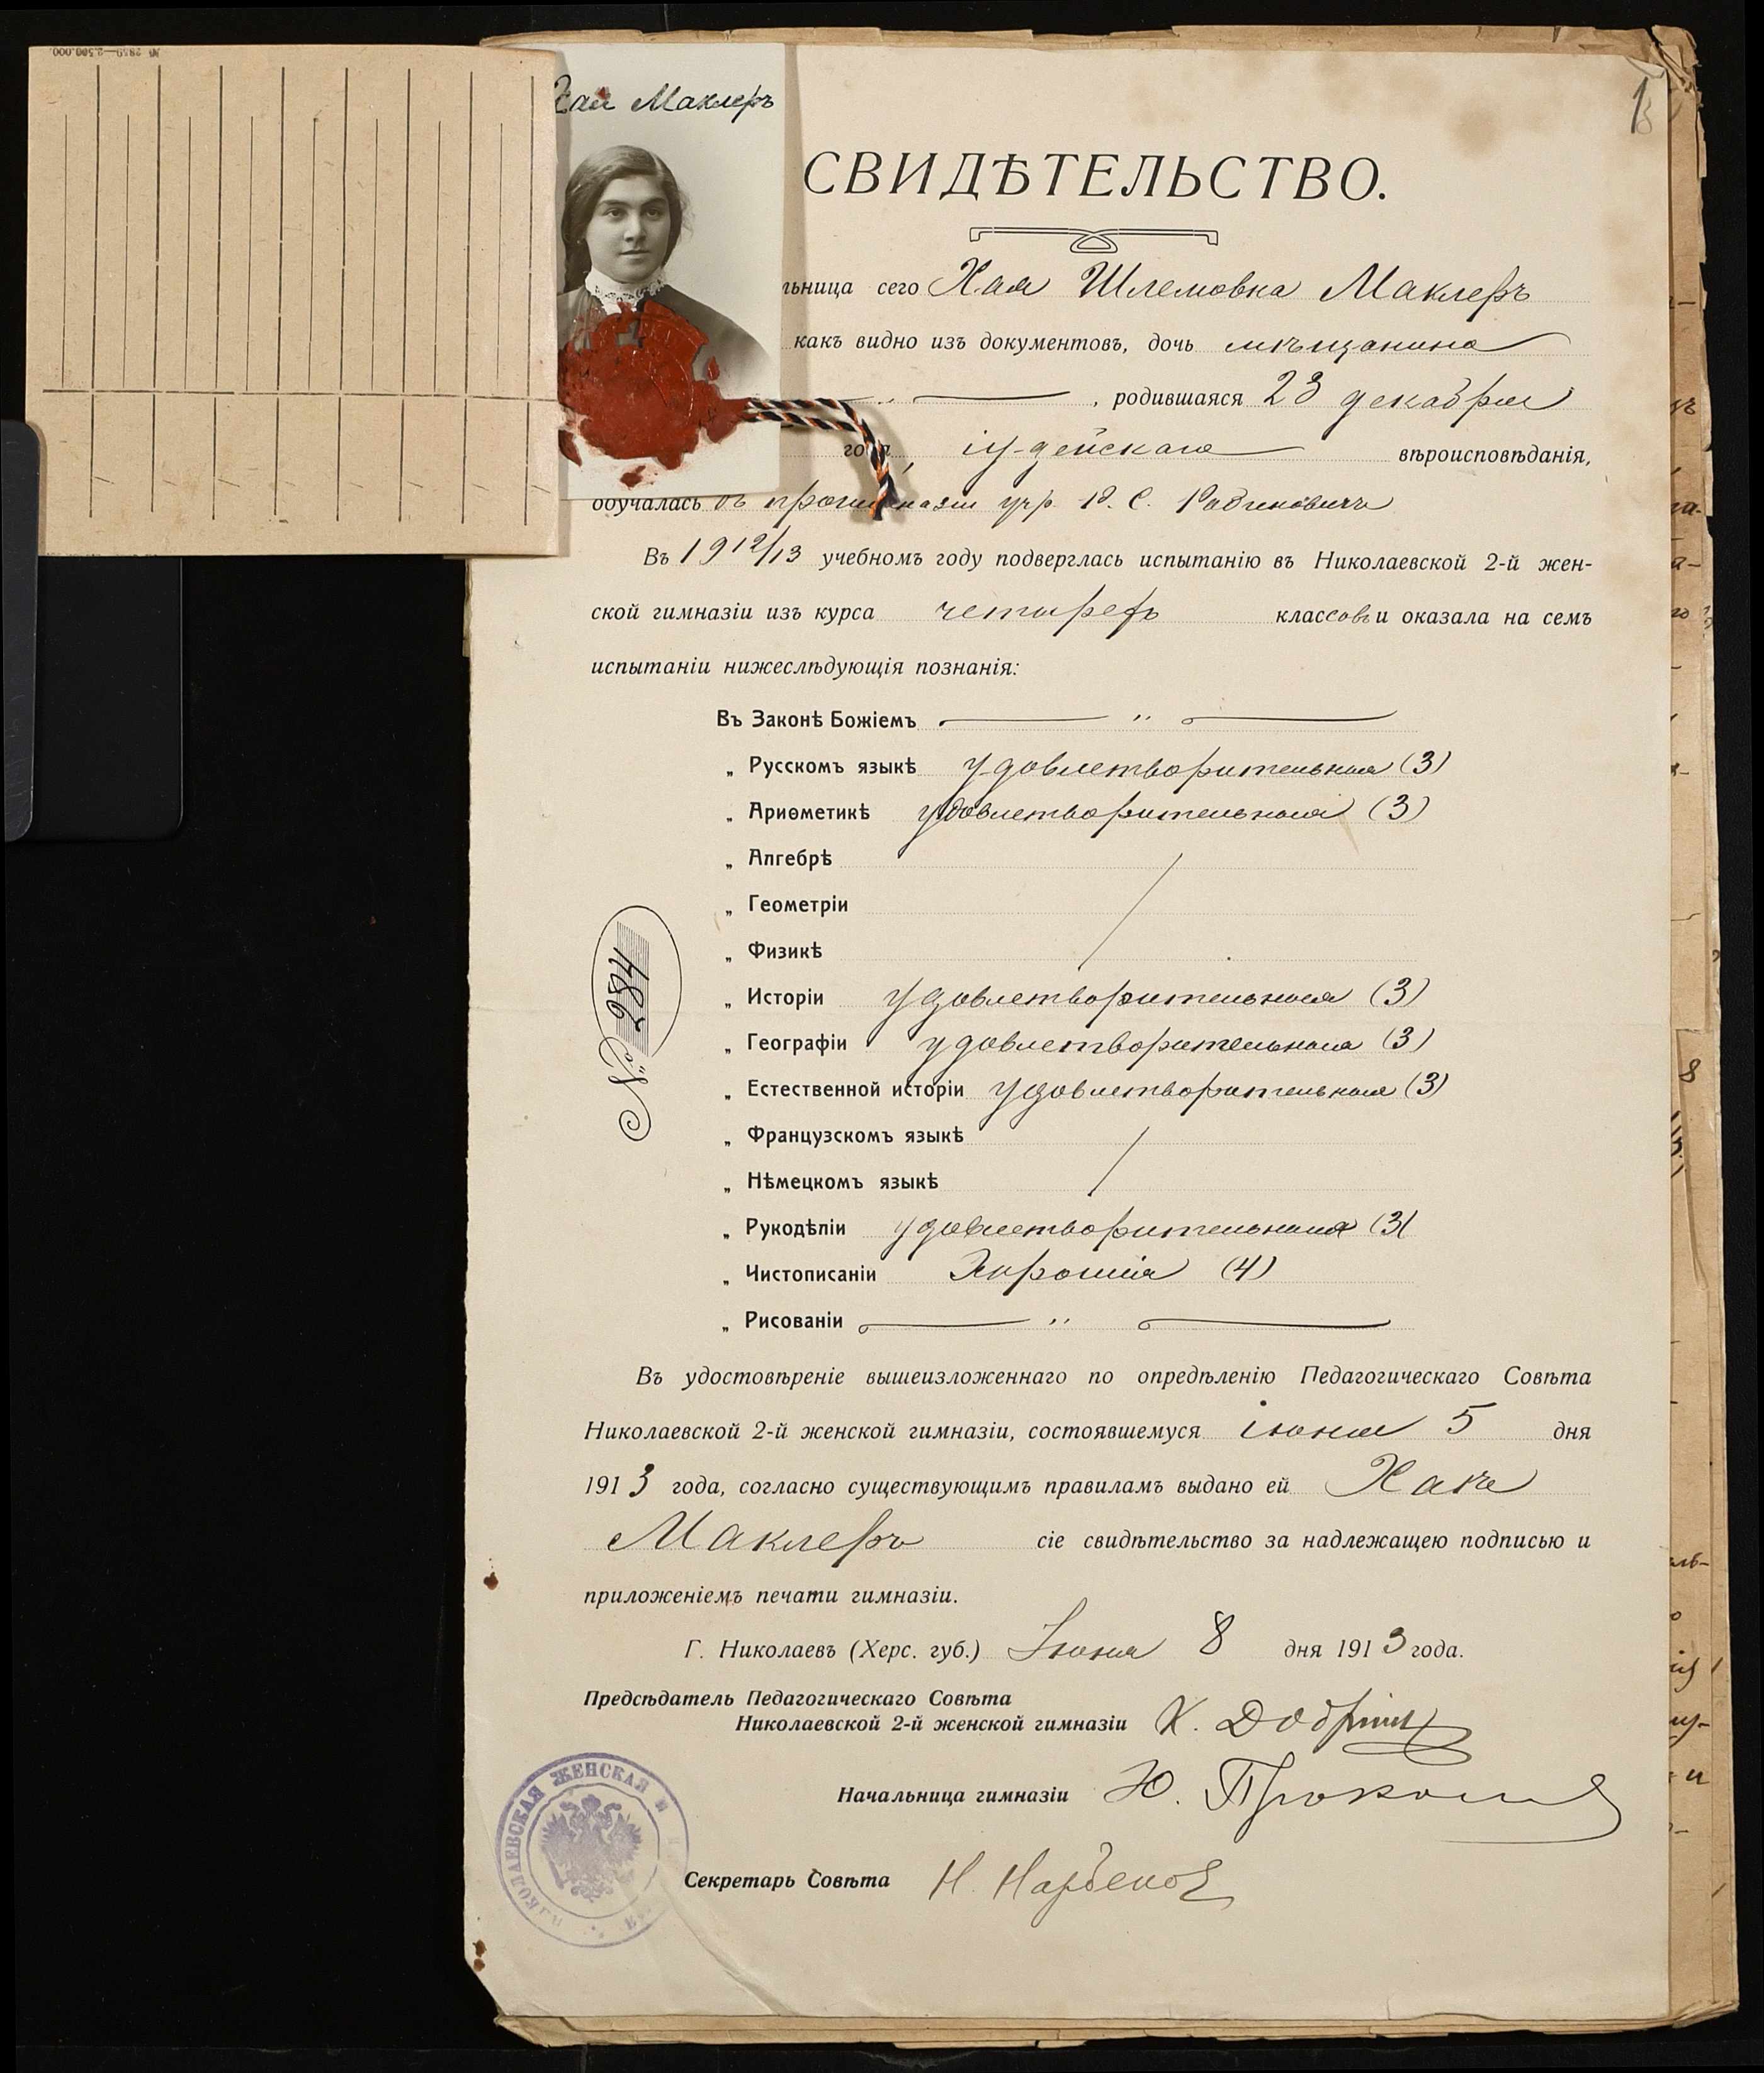 № 2859—2.500.000.
Хая Маклеръ
1
СВИДѢТЕЛЬСТВО.
льница сего Хая Шлемовна Маклеръ
какъ видно изъ документовъ, дочь мѣщанина
, родившаяся 23 декабря
года, іудейскаго вѣроисповѣданія,
обучалась въ прогимназіи учр. Р. С. Рабиновичъ
Въ 1912/13 учебномъ году подверглась испытанію въ Николаевской 2-й жен-
ской гимназіи изъ курса четырехъ классовъ и оказала на семъ
испытаніи нижеслѣдующія познанія:
Въ Законѣ Божіемъ — „ —
„ Русскомъ языкѣ удовлетворительныя (3)
„ Ариѳметикѣ удовлетворительныя (3)
„ Алгебрѣ
„ Геометріи
„ Физикѣ
„ Исторіи удовлетворительныя (3)
„ Географіи удовлетворительныя (3)
„ Естественной исторіи удовлетворительныя (3)
„ Французскомъ языкѣ
„ Нѣмецкомъ языкѣ
„ Рукодѣліи удовлетворительныя (3)
„ Чистописаніи Хорошія (4)
„ Рисованіи — „ —
№ 284
Въ удостовѣреніе вышеизложеннаго по опредѣленію Педагогическаго Совѣта
Николаевской 2-й женской гимназіи, состоявшемуся іюня 5 дня
1913 года, согласно существующимъ правиламъ выдано ей Хаѣ
Маклеръ сіе свидѣтельство за надлежащею подписью и
приложеніемъ печати гимназіи.
Г. Николаевъ (Херс. губ.) Іюня 8 дня 1913 года.
Предсѣдатель Педагогическаго Совѣта
Николаевской 2-й женской гимназіи К.
Начальница гимназіи Ю.
Секретарь Совѣта Н.
НИКОЛАЕВСКАЯ ЖЕНСКАЯ